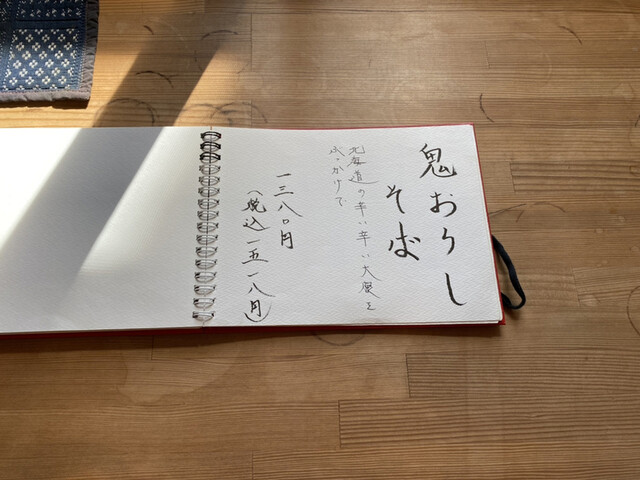 鬼おろし
そば
北海道の辛い辛い大根を
ぶっかけで
一三八〇円
（税込一五一八円）